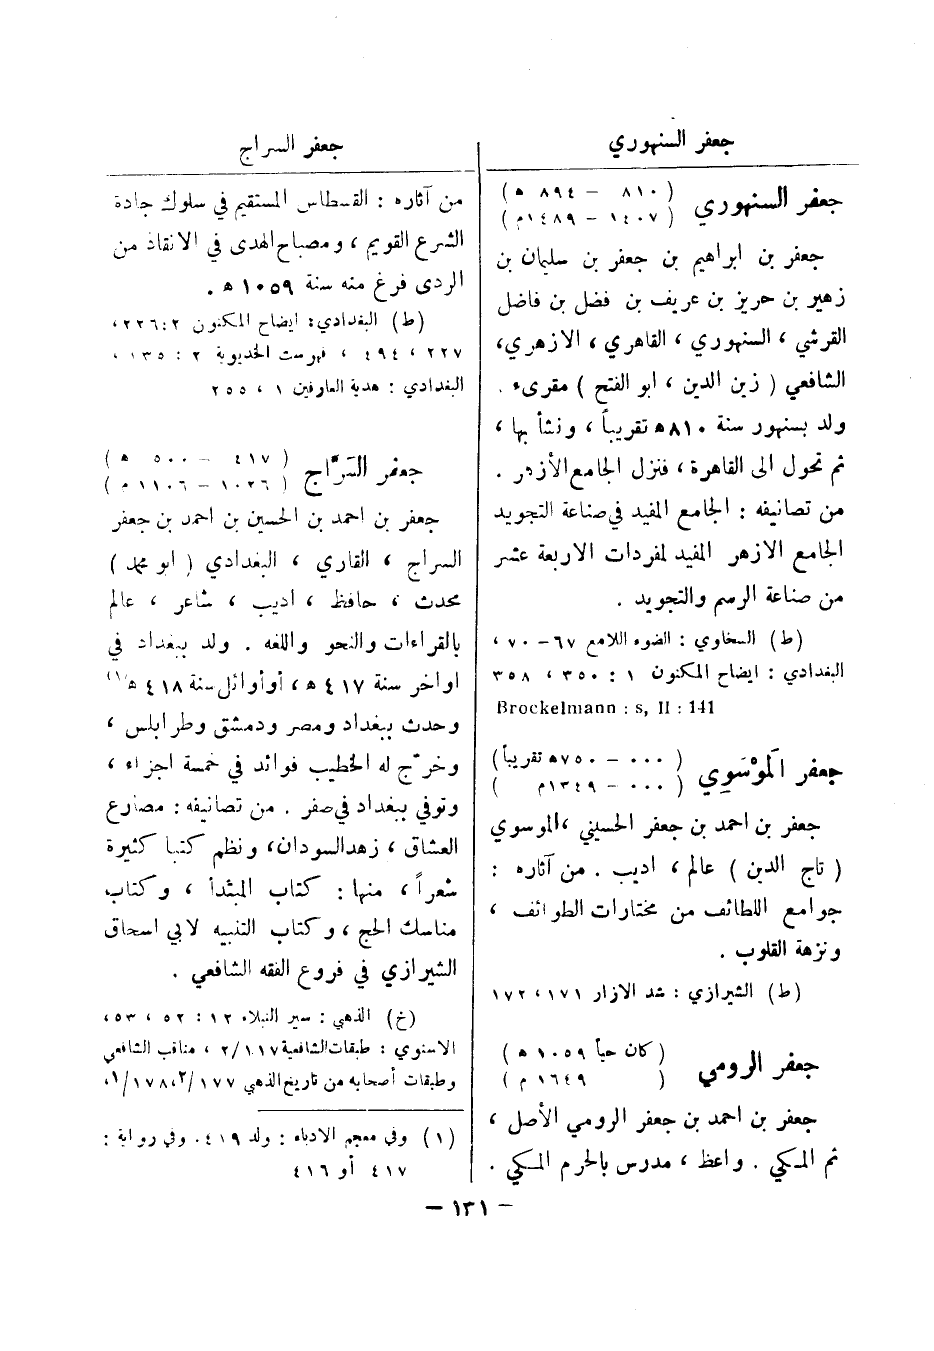 جعفر السنهوري
جعفر السنهوري (٨١٠ – ٨٩٤ ه)
(١٤٠٧ – ١٤٨٩م)
جعفر بن ابراهيم بن جعفر بن سليمان بن
زهير بن حريز بن عريف بن فضل بن فاضل
القرشي ، السنهوري ، القاهري ، الازهري،
الشافعي ( زين الدين ، ابو الفتح ) مقرىء .
ولد بسنهور سنة ٨١٠ه تقريباً ، ونشأ بها ،
ثم تحول الى القاهرة ، فنزل الجامع الأزهر .
من تصانيفه : الجامع المفيد في صناعة التجويد
الجامع الازهر المفيد لمفردات الاربعة عشر
من صناعة الرسم والتجويد .
(ط) السخاوي : الضوء اللامع ٦٧ – ٧٠ ،
البغدادي : ايضاح المكنون ١ : ٣٥٠ ، ٣٥٨
Brockelmann : s, II : 141
جعفر المُوْسَوِي (٠٠٠ – ٧٥٠ه تقريباً)
(٠٠٠ – ١٣٤٩م )
جعفر بن احمد بن جعفر الحسيني ،الموسوي
( تاج الدين ) عالم ، اديب . من آثاره :
جوامع اللطائف من مختارات الطوائف ،
ونزهة القلوب .
(ط) الشيرازي : شد الازار ١٧١ ، ١٧٢
جعفر الرومي (كان حياً ١٠٥٩ ه )
( ١٦٤٩ م )
جعفر بن احمد بن جعفر الرومي الأصل ،
ثم المكي . واعظ ، مدرس بالحرم المكي .
جعفر السراج
من آثاره : القسطاس المستقيم في سلوك جادة
الشرع القويم ، ومصباح الهدى في الانقاذ من
الردى فرغ منه سنة ١٠٥٩ ه .
(ط) البغدادي: ايضاح المكنون ٢:٢٢٦،
٢٢٧ ، ٤٩٤ ، فهرست الخديوية ٢ : ١٣٥ ،
البغدادي : هدية العارفين ١ ، ٢٥٥
جعفر السَّرّاج (٤١٧ – ٥٠٠ ه )
(١٠٢٦ – ١١٠٦ م )
جعفر بن احمد بن الحسين بن احمد بن جعفر
السراج ، القاري ، البغدادي ( ابو محمد )
محدث ، حافظ ، اديب ، شاعر ، عالم
بالقراءات والنحو واللغه . ولد ببغداد في
اواخر سنة ٤١٧ ه ، أو أوائل سنة ٤١٨ ه(١)
وحدث ببغداد ومصر ودمشق وطرابلس ،
وخرّج له الخطيب فوائد في خمسة اجزاء ،
وتوفي ببغداد في صفر . من تصانيفه : مصارع
العشاق ، زهدالسودان، ونظم كتبا كثيرة
شعراً ، منها : كتاب المبتدأ ، وكتاب
مناسك الحج ، وكتاب التنبيه لابي اسحاق
الشيرازي في فروع الفقه الشافعي .
(خ) الذهبي : سير النبلاء ١٢ : ٥٢ ، ٥٣،
الاسنوي : طبقات الشافعية ٢/١١٧ ، مناقب الشافعي
وطبقات أصحابه من تاريخ الذهبي ١٧٧/٢، ١٧٨/١،
(١) وفي معجم الادباء : ولد ٤١٩. وفي رواية :
٤١٧ أو ٤١٦
– ١٣١ –